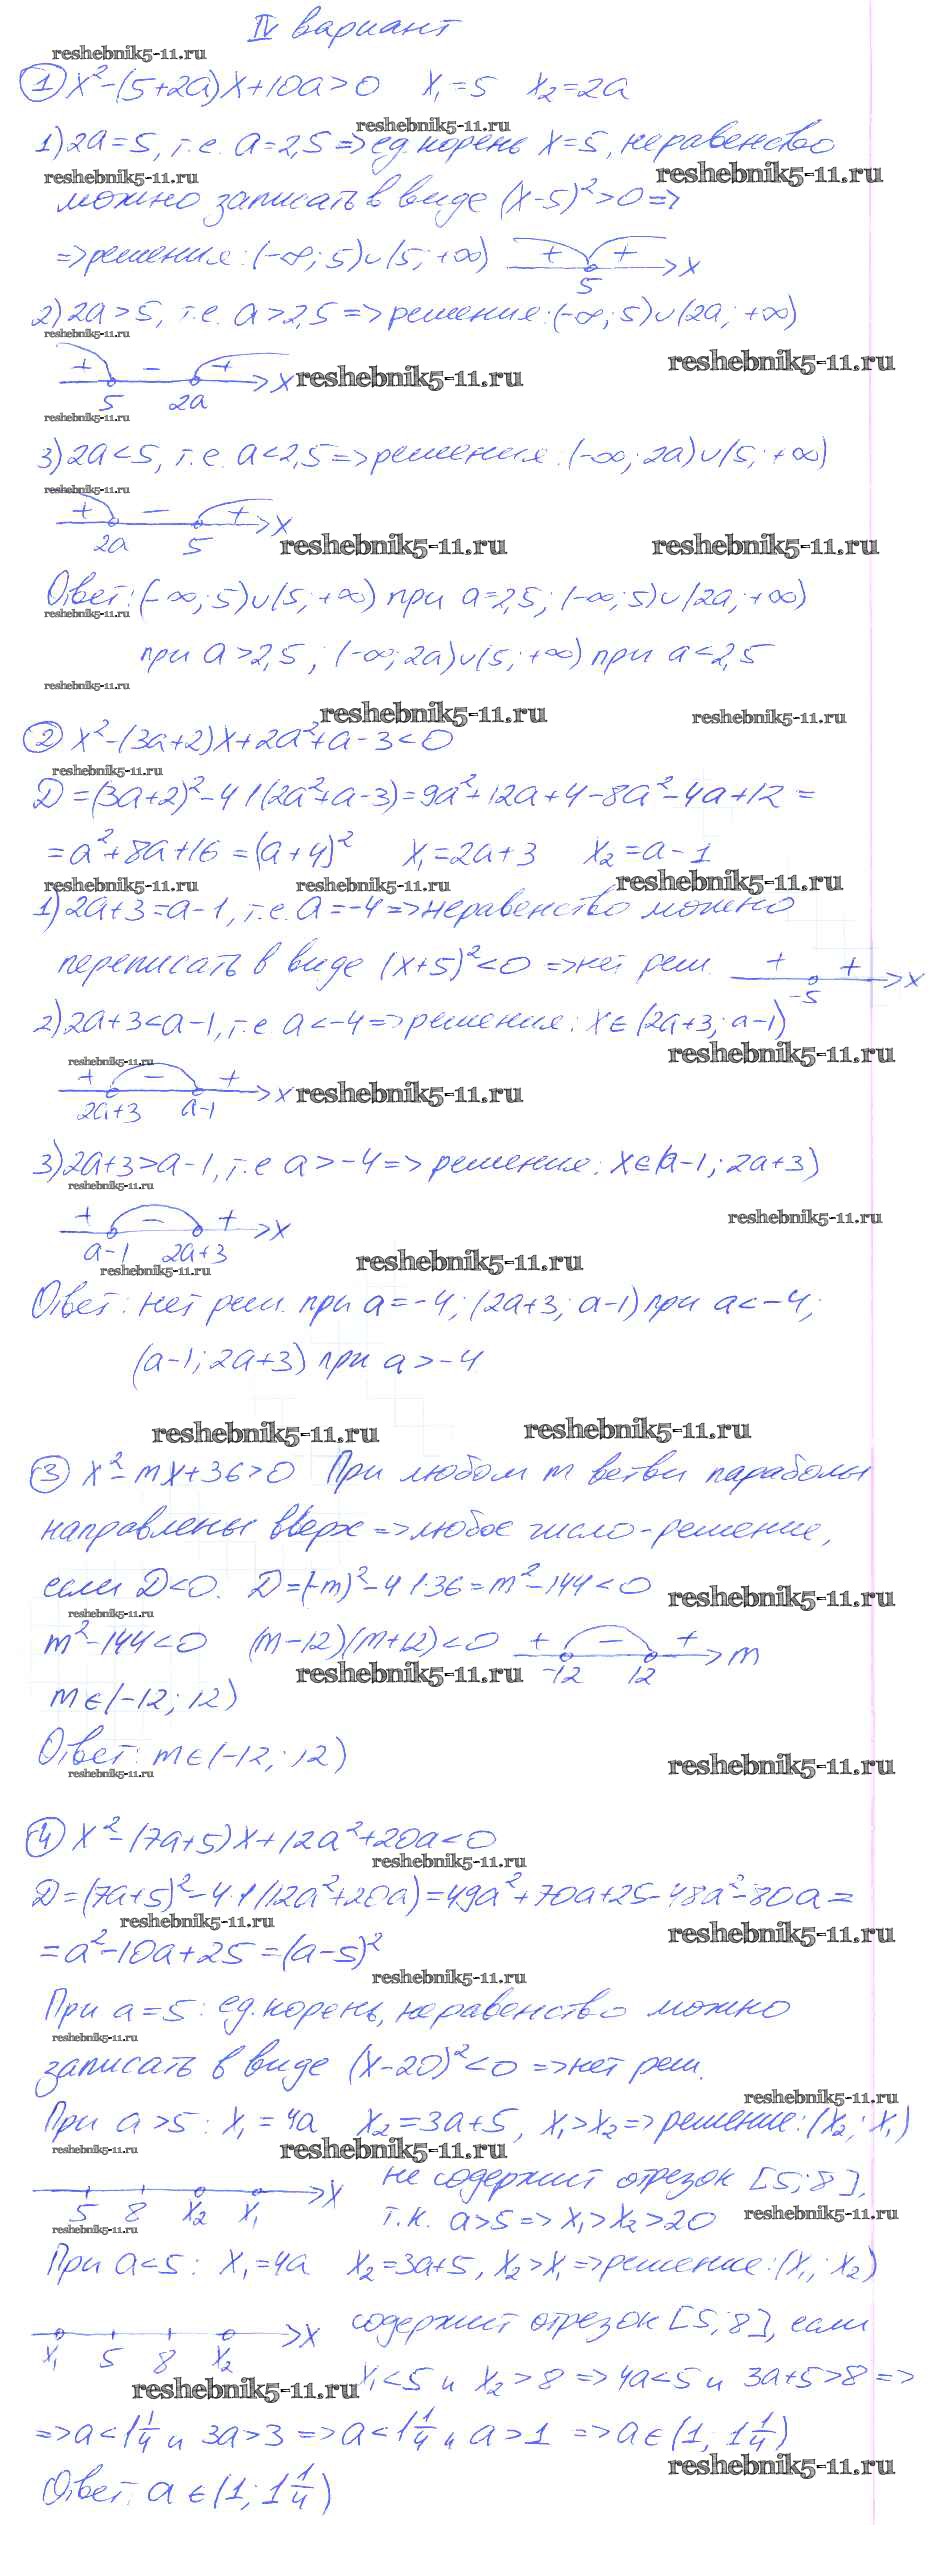 IV вариант
reshebnik5-11.ru
① x²-(5+2a)x+10a>0 x₁=5 x₂=2a
reshebnik5-11.ru
1) 2a=5, т.е. a=2,5 => ед.корень x=5, неравенство
reshebnik5-11.ru reshebnik5-11.ru
можно записать в виде (x-5)²>0 =>
=> решения: (-∞; 5)∪(5; +∞) + + 5 x
2) 2a>5, т.е. a>2,5 => решения: (-∞; 5)∪(2a; +∞)
reshebnik5-11.ru
+ - + x reshebnik5-11.ru reshebnik5-11.ru
5 2a
reshebnik5-11.ru
3) 2a<5, т.е. a<2,5 => решения: (-∞; 2a)∪(5; +∞)
reshebnik5-11.ru
+ - + x
2a 5 reshebnik5-11.ru reshebnik5-11.ru
Ответ: (-∞; 5)∪(5; +∞) при a=2,5; (-∞; 5)∪(2a; +∞)
reshebnik5-11.ru
при a>2,5; (-∞; 2a)∪(5; +∞) при a<2,5
reshebnik5-11.ru
reshebnik5-11.ru reshebnik5-11.ru
② x²-(3a+2)x+2a²+a-3<0
reshebnik5-11.ru
D=(3a+2)²-4·1(2a²+a-3)=9a²+12a+4-8a²-4a+12=
=a²+8a+16=(a+4)² x₁=2a+3 x₂=a-1
reshebnik5-11.ru reshebnik5-11.ru reshebnik5-11.ru
1) 2a+3=a-1, т.е. a=-4 => неравенство можно
переписать в виде (x+5)²<0 => нет реш. + + -5 x
2) 2a+3<a-1, т.е a<-4 => решения: x∈(2a+3; a-1)
reshebnik5-11.ru reshebnik5-11.ru
+ - + x reshebnik5-11.ru
2a+3 a-1
3) 2a+3>a-1, т.е a>-4 => решения: x∈(a-1; 2a+3)
reshebnik5-11.ru
+ - + x reshebnik5-11.ru
a-1 2a+3
reshebnik5-11.ru reshebnik5-11.ru
Ответ: нет реш. при a=-4; (2a+3; a-1) при a<-4;
(a-1; 2a+3) при a>-4
reshebnik5-11.ru reshebnik5-11.ru
③ x²-mx+36>0 При любом m ветви параболы
направлены вверх => любое число-решение,
если D<0. D=(-m)²-4·1·36=m²-144<0 reshebnik5-11.ru
reshebnik5-11.ru
m²-144<0 (m-12)(m+12)<0 + - + m
reshebnik5-11.ru -12 12
m∈(-12; 12)
Ответ: m∈(-12; 12)
reshebnik5-11.ru reshebnik5-11.ru
④ x²-(7a+5)x+12a²+20a<0
reshebnik5-11.ru
D=(7a+5)²-4·1(12a²+20a)=49a²+70a+25-48a²-80a=
reshebnik5-11.ru reshebnik5-11.ru
=a²-10a+25=(a-5)²
reshebnik5-11.ru
При a=5: ед.корень, неравенство можно
reshebnik5-11.ru
записать в виде (x-20)²<0 => нет реш.
reshebnik5-11.ru
При a>5: x₁=4a x₂=3a+5, x₁>x₂ => решение: (x₂; x₁)
reshebnik5-11.ru reshebnik5-11.ru
5 8 x₂ x₁ x не содержит отрезок [5; 8],
т.к. a>5 => x₁>x₂>20 reshebnik5-11.ru
reshebnik5-11.ru
При a<5: x₁=4a x₂=3a+5, x₂>x₁ => решение: (x₁; x₂)
x₁ 5 8 x₂ x содержит отрезок [5; 8], если
reshebnik5-11.ru x₁<5 и x₂>8 => 4a<5 и 3a+5>8 =>
=> a<1 1/4 и 3a>3 => a<1 1/4 и a>1 => a∈(1; 1 1/4)
reshebnik5-11.ru
Ответ: a∈(1; 1 1/4)